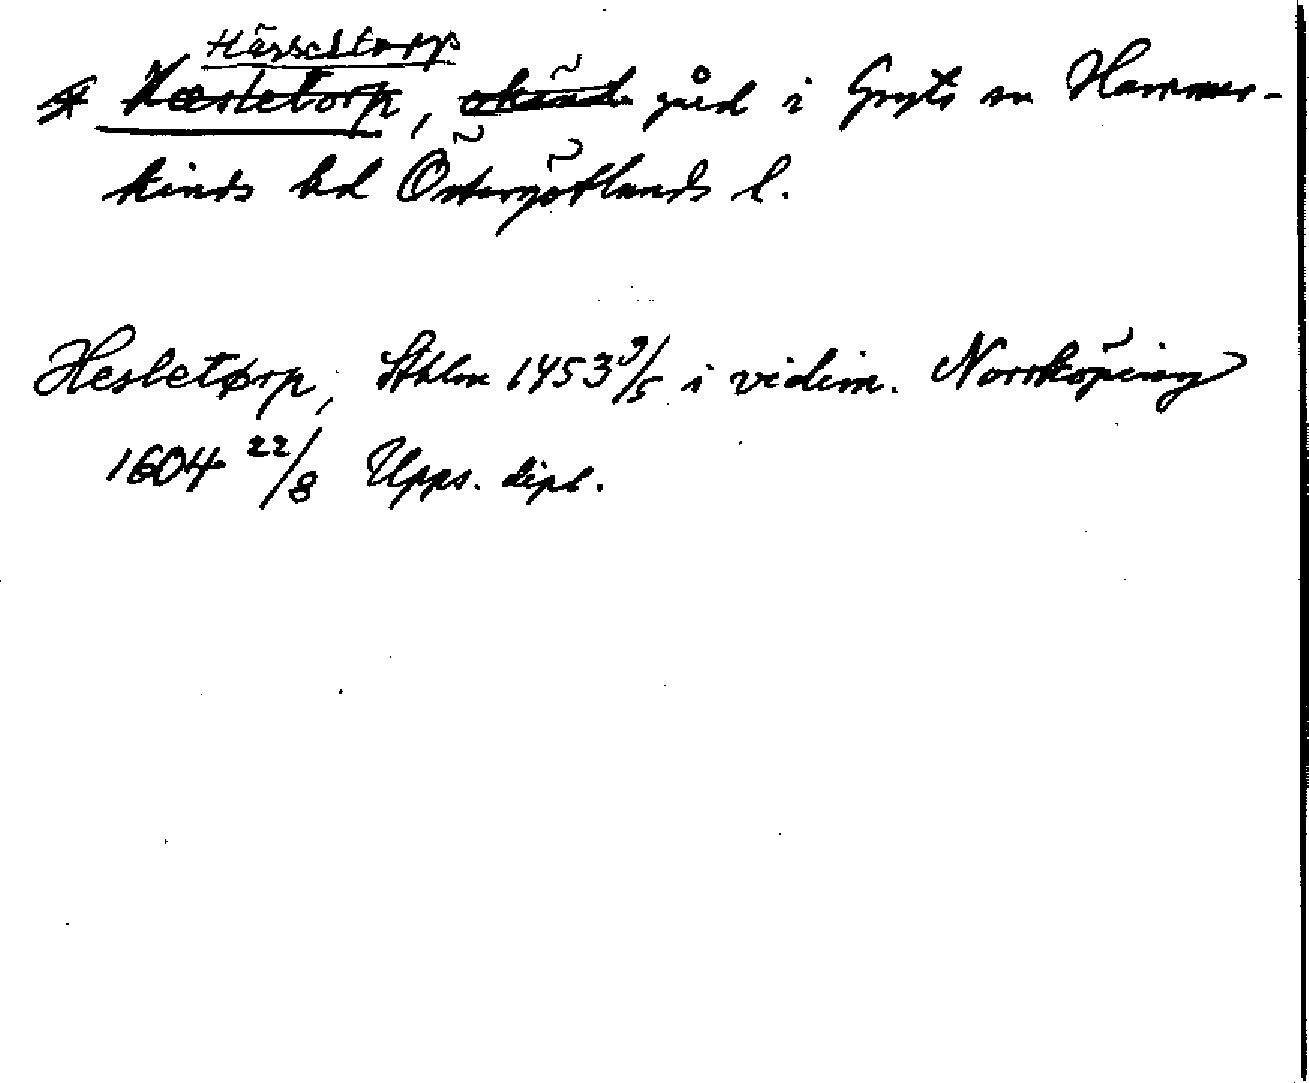 Hässeltorp
* Hæsletorp, okänd gård i Gryts sn Hammer-
kinds hd Östergötlands l.
Hesletørp, Sthlm 1453 9/5 i vidim. Norrköping
1604 22/8 Upps. dipl.